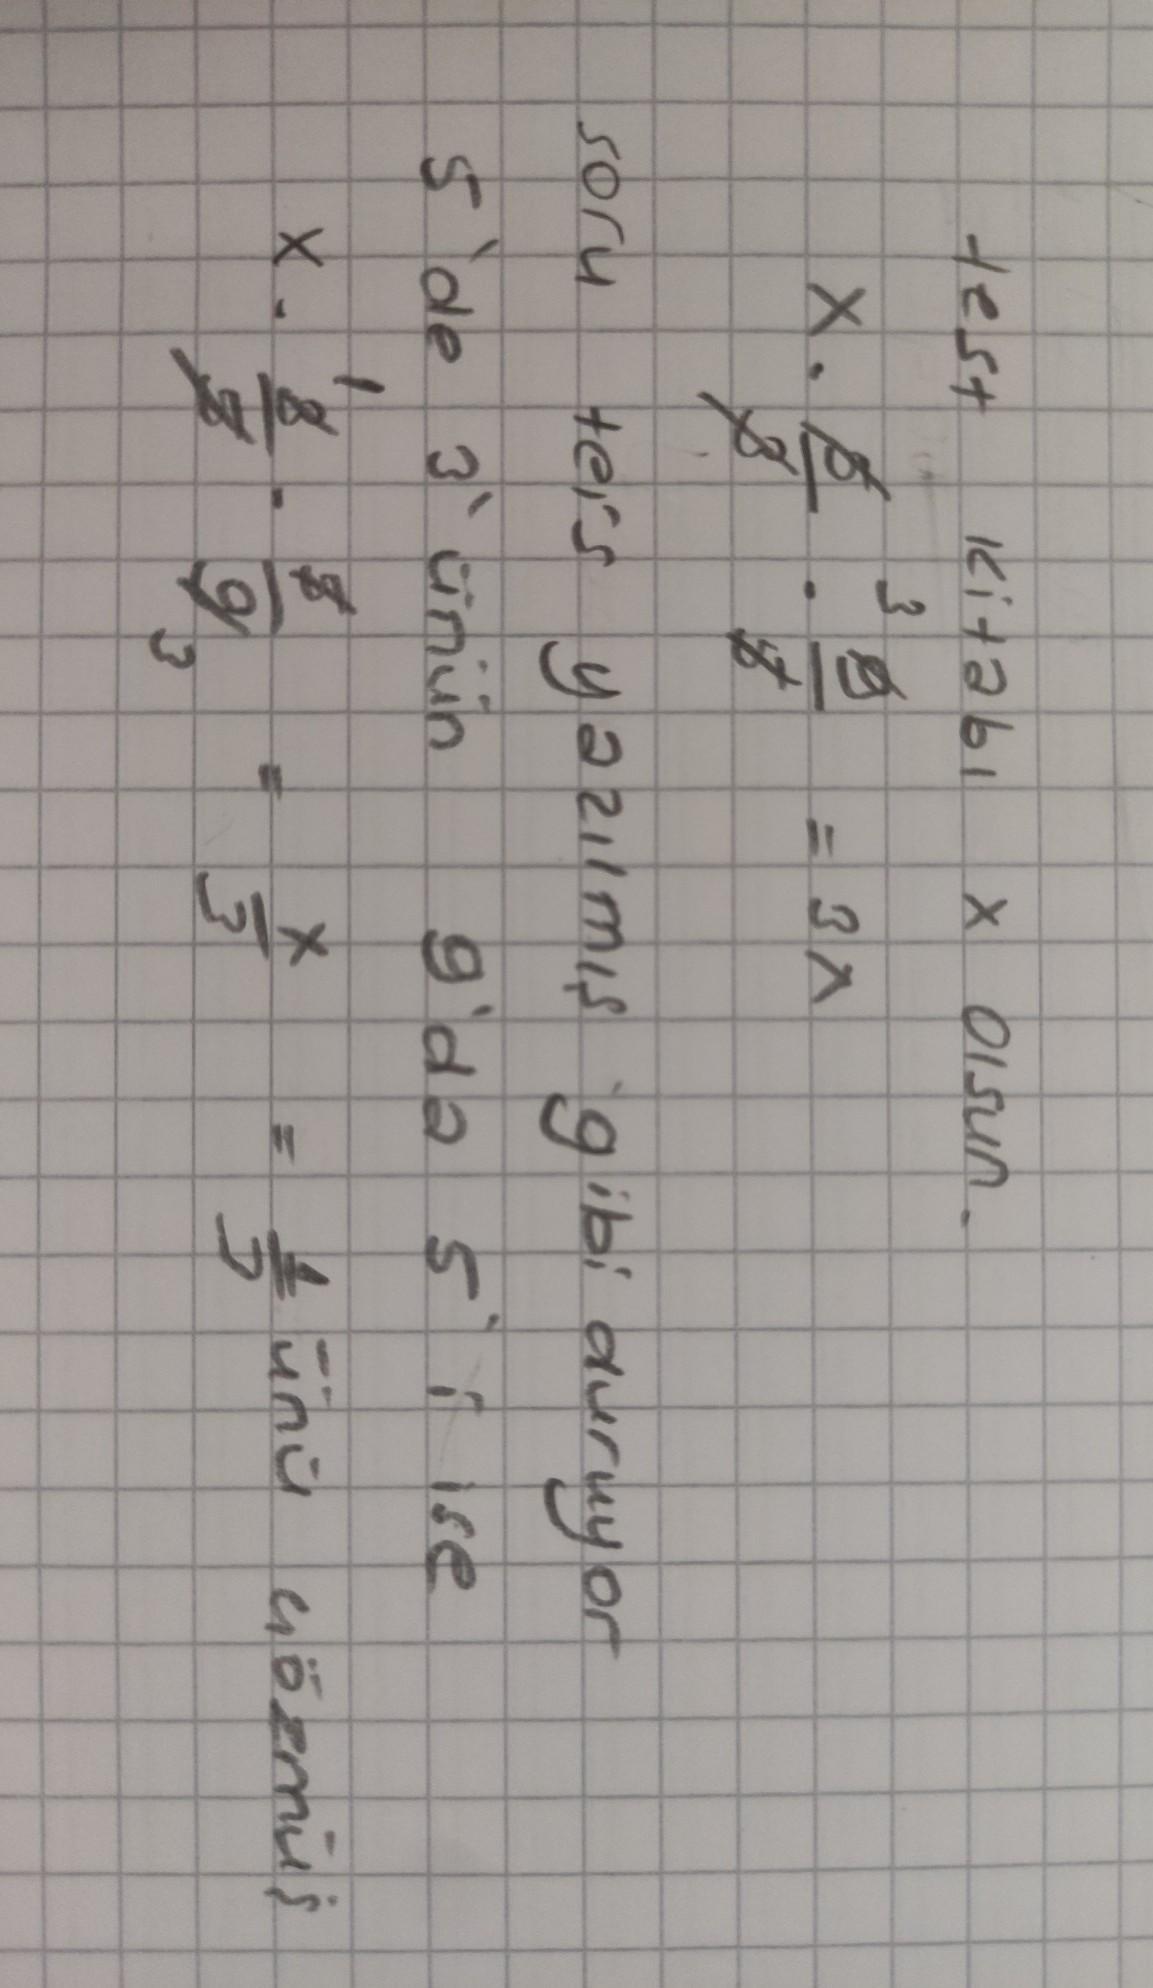 test kitabı x olsun.
x . 5/3 . 9/5 3 = 3x
soru ters yazılmış gibi duruyor
5'de 3'ünün 9'da 5'i ise
x . 3/5 1 . 5/9 3 = x/3 = 1/3 ünü çözmüş